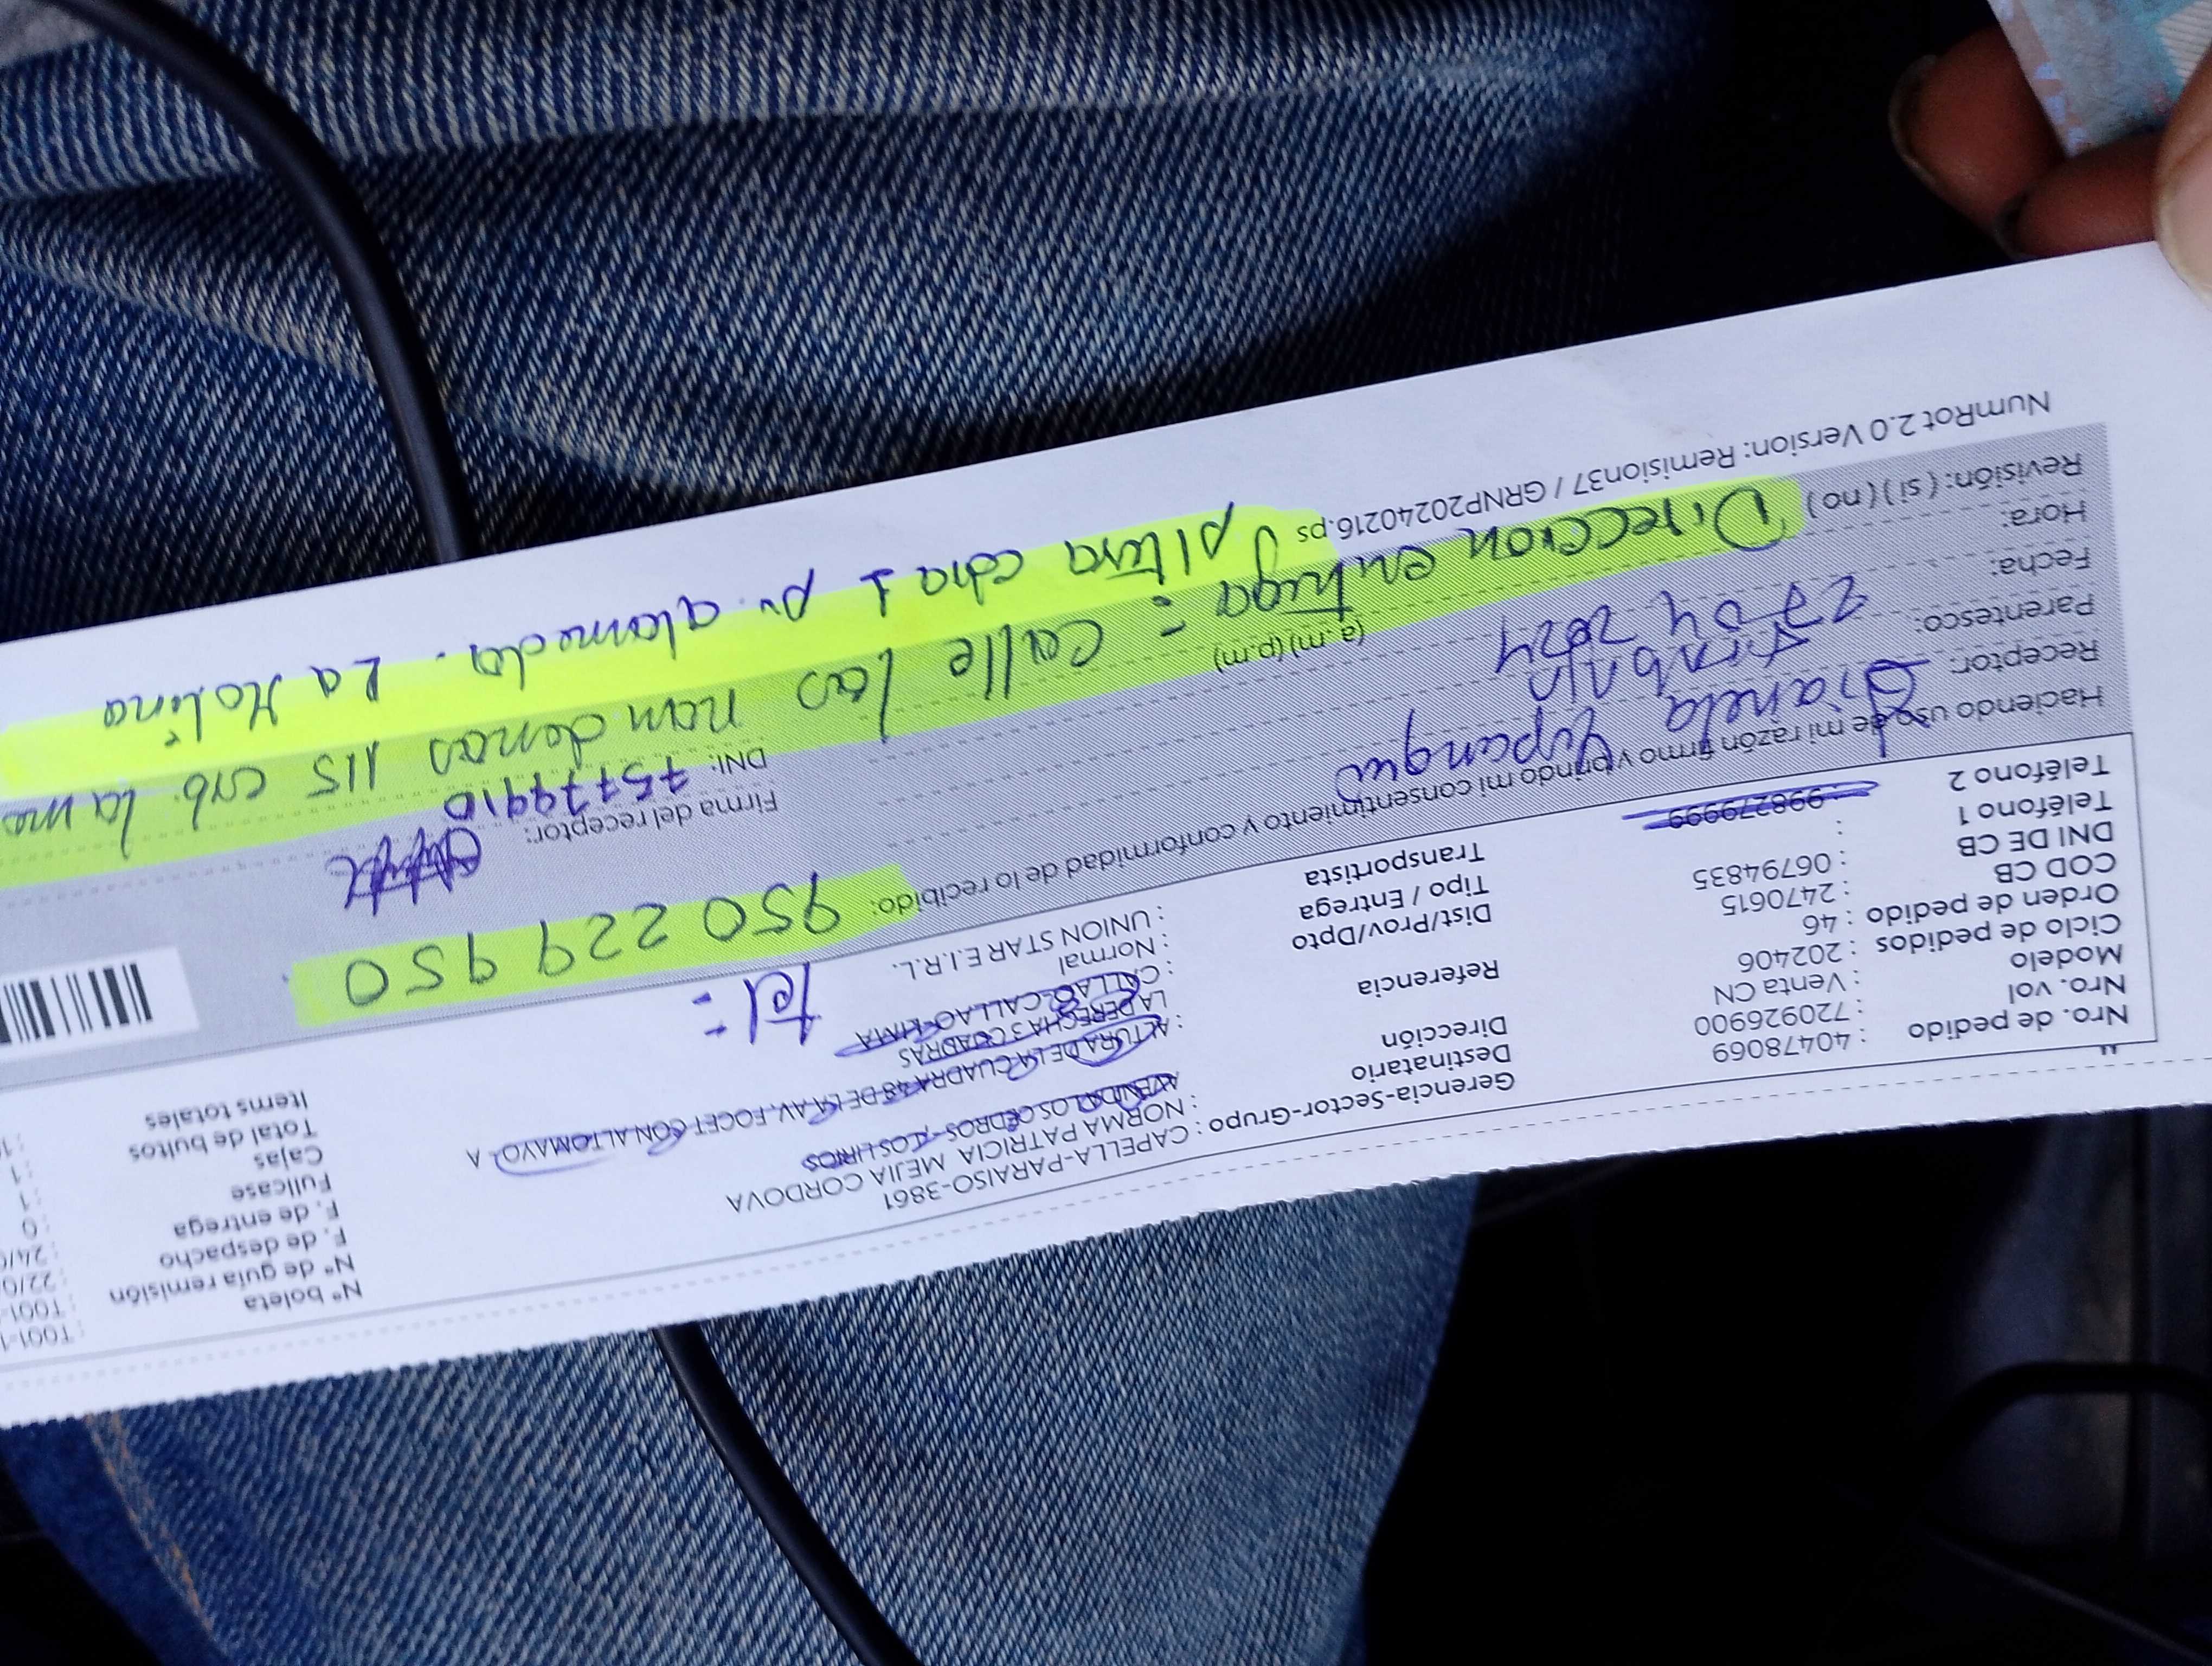 Nº boleta : T001-1
Nº de guia remisión : T001-
F. de despacho : 22/0
F. de entrega : 24/0
Fullcase : 0
Cajas : 1
Total de bultos : 1
Items totales
Gerencia-Sector-Grupo : CAPELLA-PARAISO-3861
Destinatario : NORMA PATRICIA MEJIA CORDOVA
Dirección : AVENIDA LOS CEDROS - LOS LIRIOS
Referencia : ALTURA DE LA CUADRA 48 DE LA AV. FOCET CON ALTOMAYO - A
LA DERECHA 3 CUADRAS
Dist/Prov/Dpto : CALLAO-CALLAO-LIMA
Tipo / Entrega : Normal
Transportista : UNION STAR E.I.R.L.
tel =
950 229 950
Nro. de pedido : 40478069
Nro. vol : 720926900
Modelo : Venta CN
Ciclo de pedidos : 202406
Orden de pedido : 46
COD CB : 2470615
DNI DE CB : 06794835
Teléfono 1 :
Teléfono 2 : 998279999
Haciendo uso de mi razón firmo y brindo mi consentimiento y conformidad de lo recibido:
Receptor: Gianela Yupanqui
Firma del receptor:
Parentesco:
DNI: 75779910
Fecha: 27 04 2024
Hora: (a.m) (p.m)
Revisión: (si) (no)
Direccion entrega = Calle las 115 urb. la
altura cdra 1 av. alameda. La Molina
NumRot 2.0 Version: Remision37 / GRNP20240216.ps